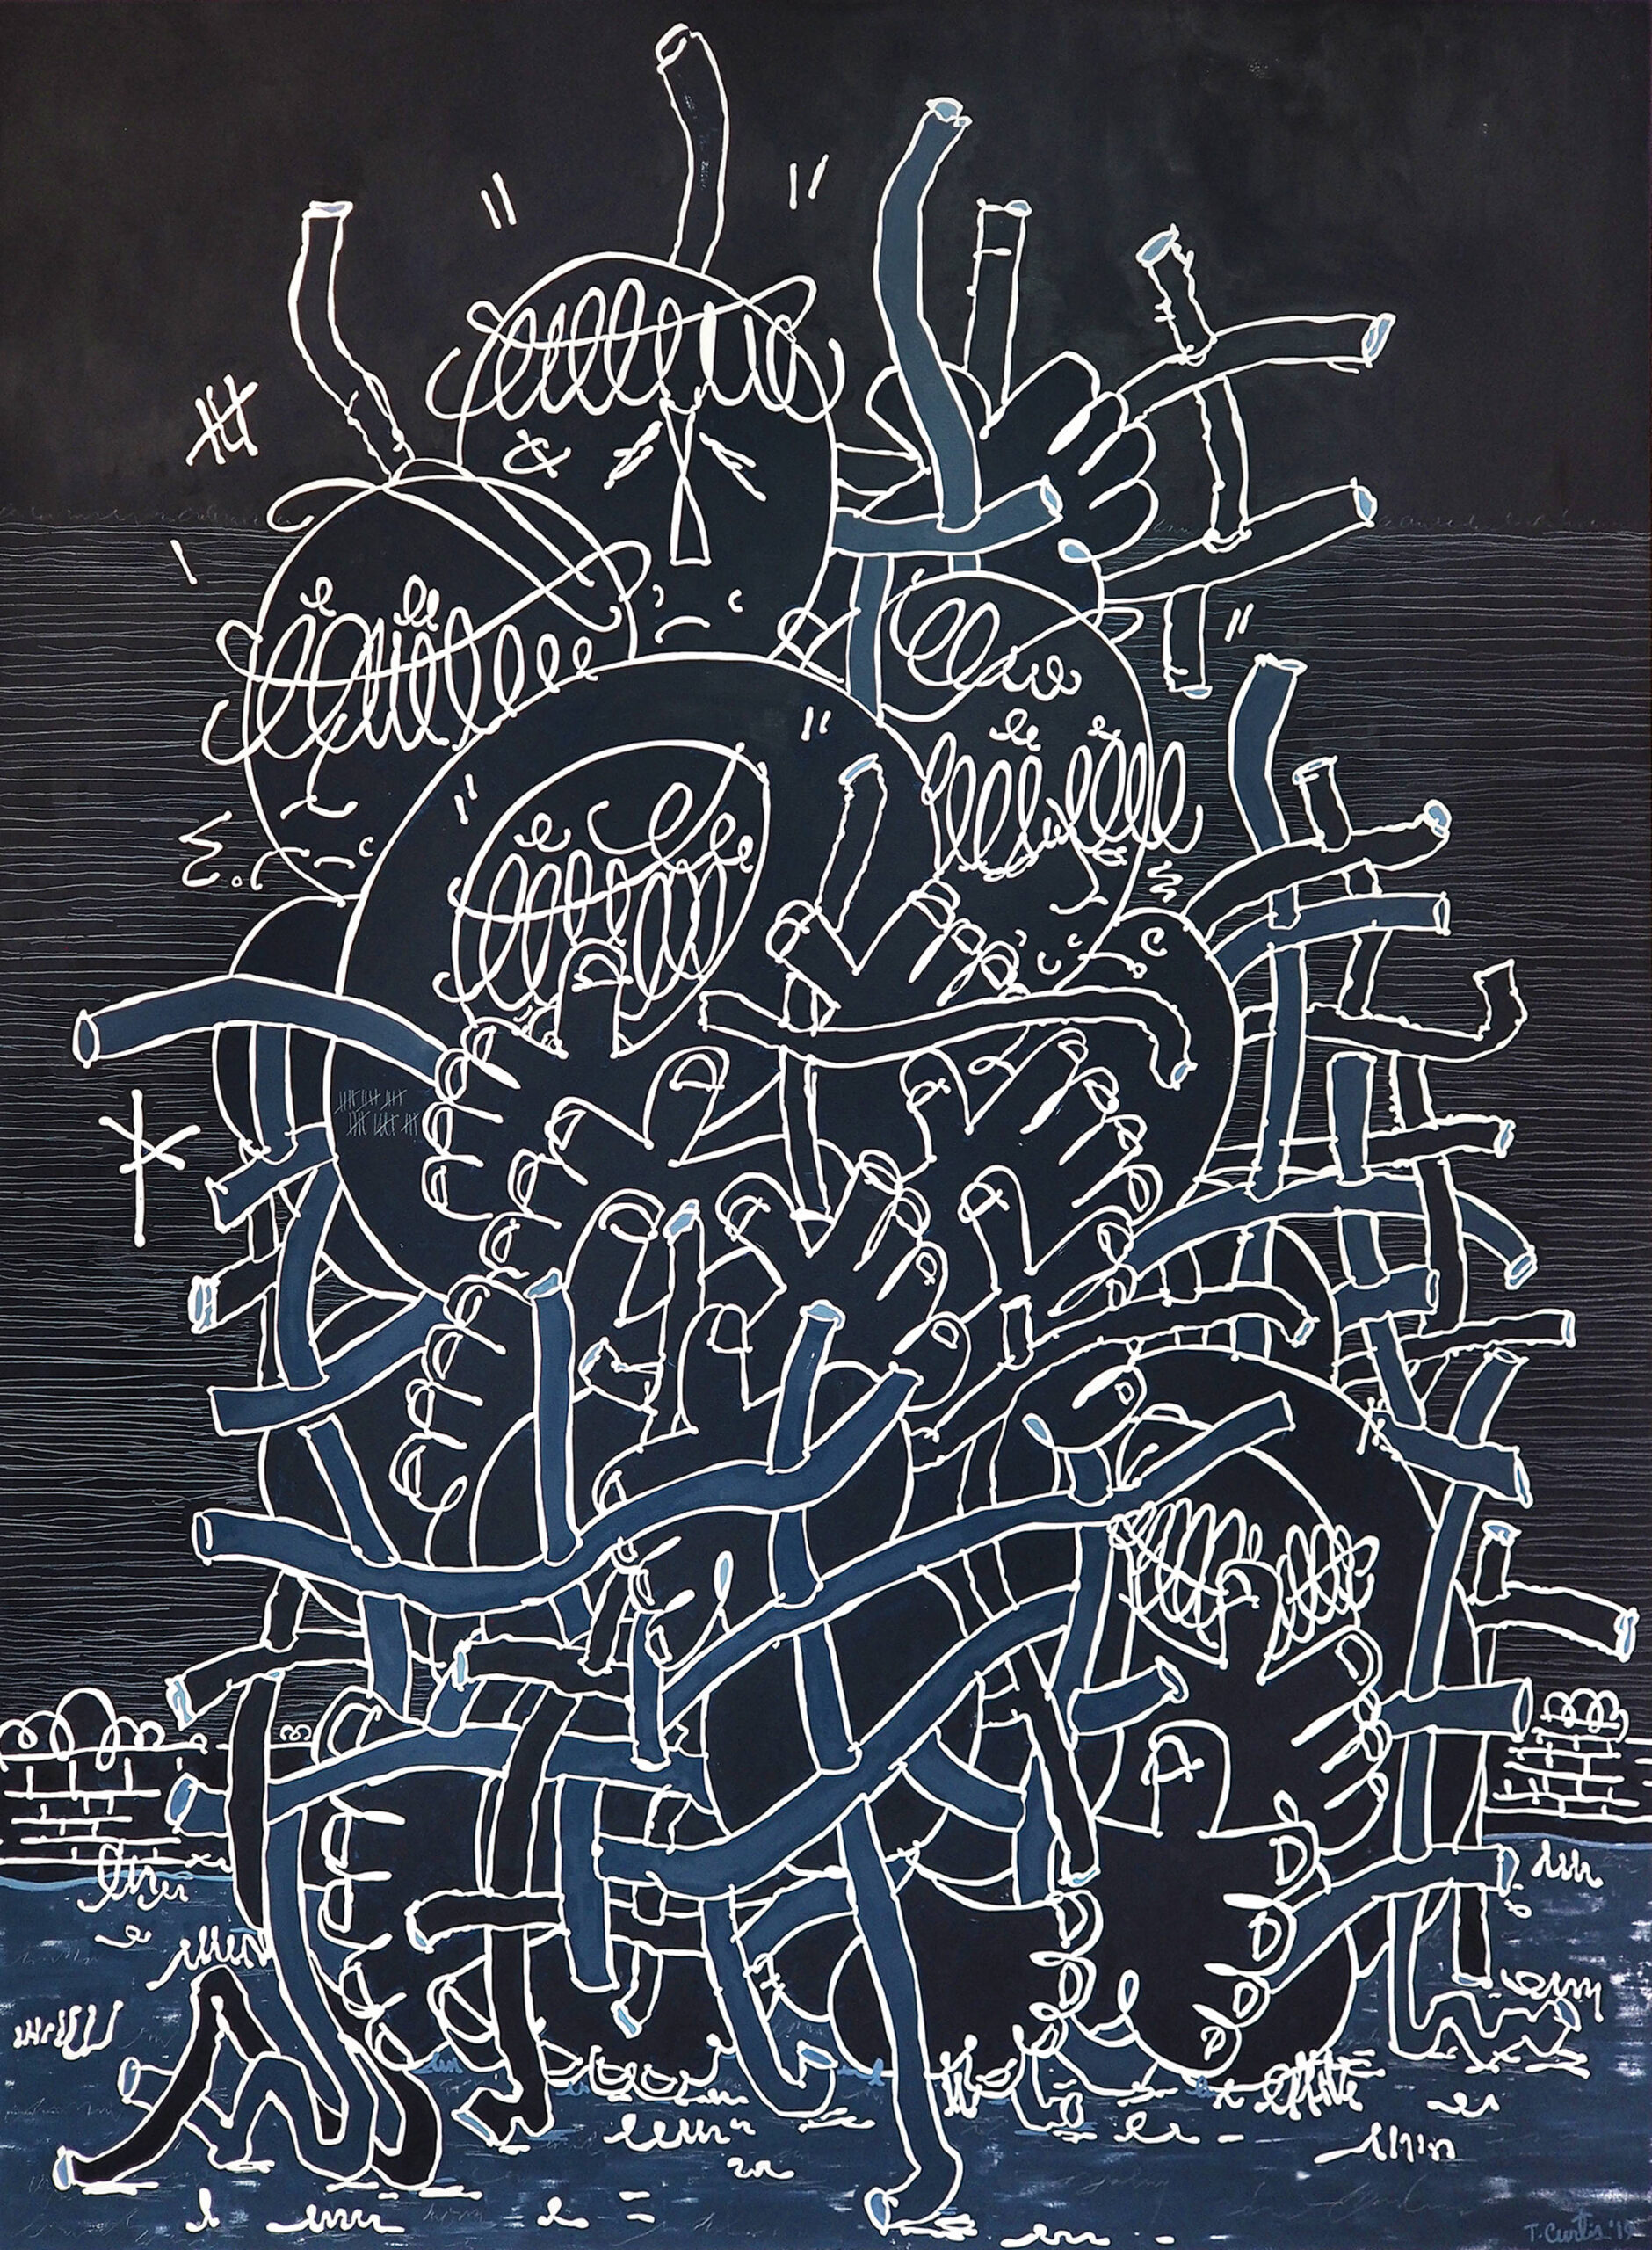 T. Curtis '19